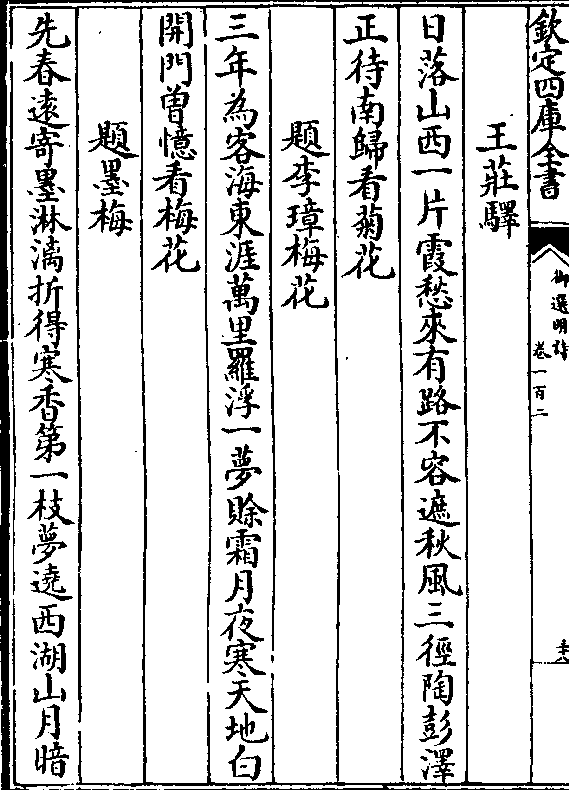 欽定四庫全書
御選明詩
卷一百二
王莊驛
日落山西一片霞愁來有路不容遮秋風三徑陶彭澤
正待南歸看菊花
題李璋梅花
三年為客海東涯萬里羅浮一夢賒霜月夜寒天地白
開門曽憶看梅花
題墨梅
先春遠寄墨淋漓折得寒香第一枝夢遶西湖山月暗